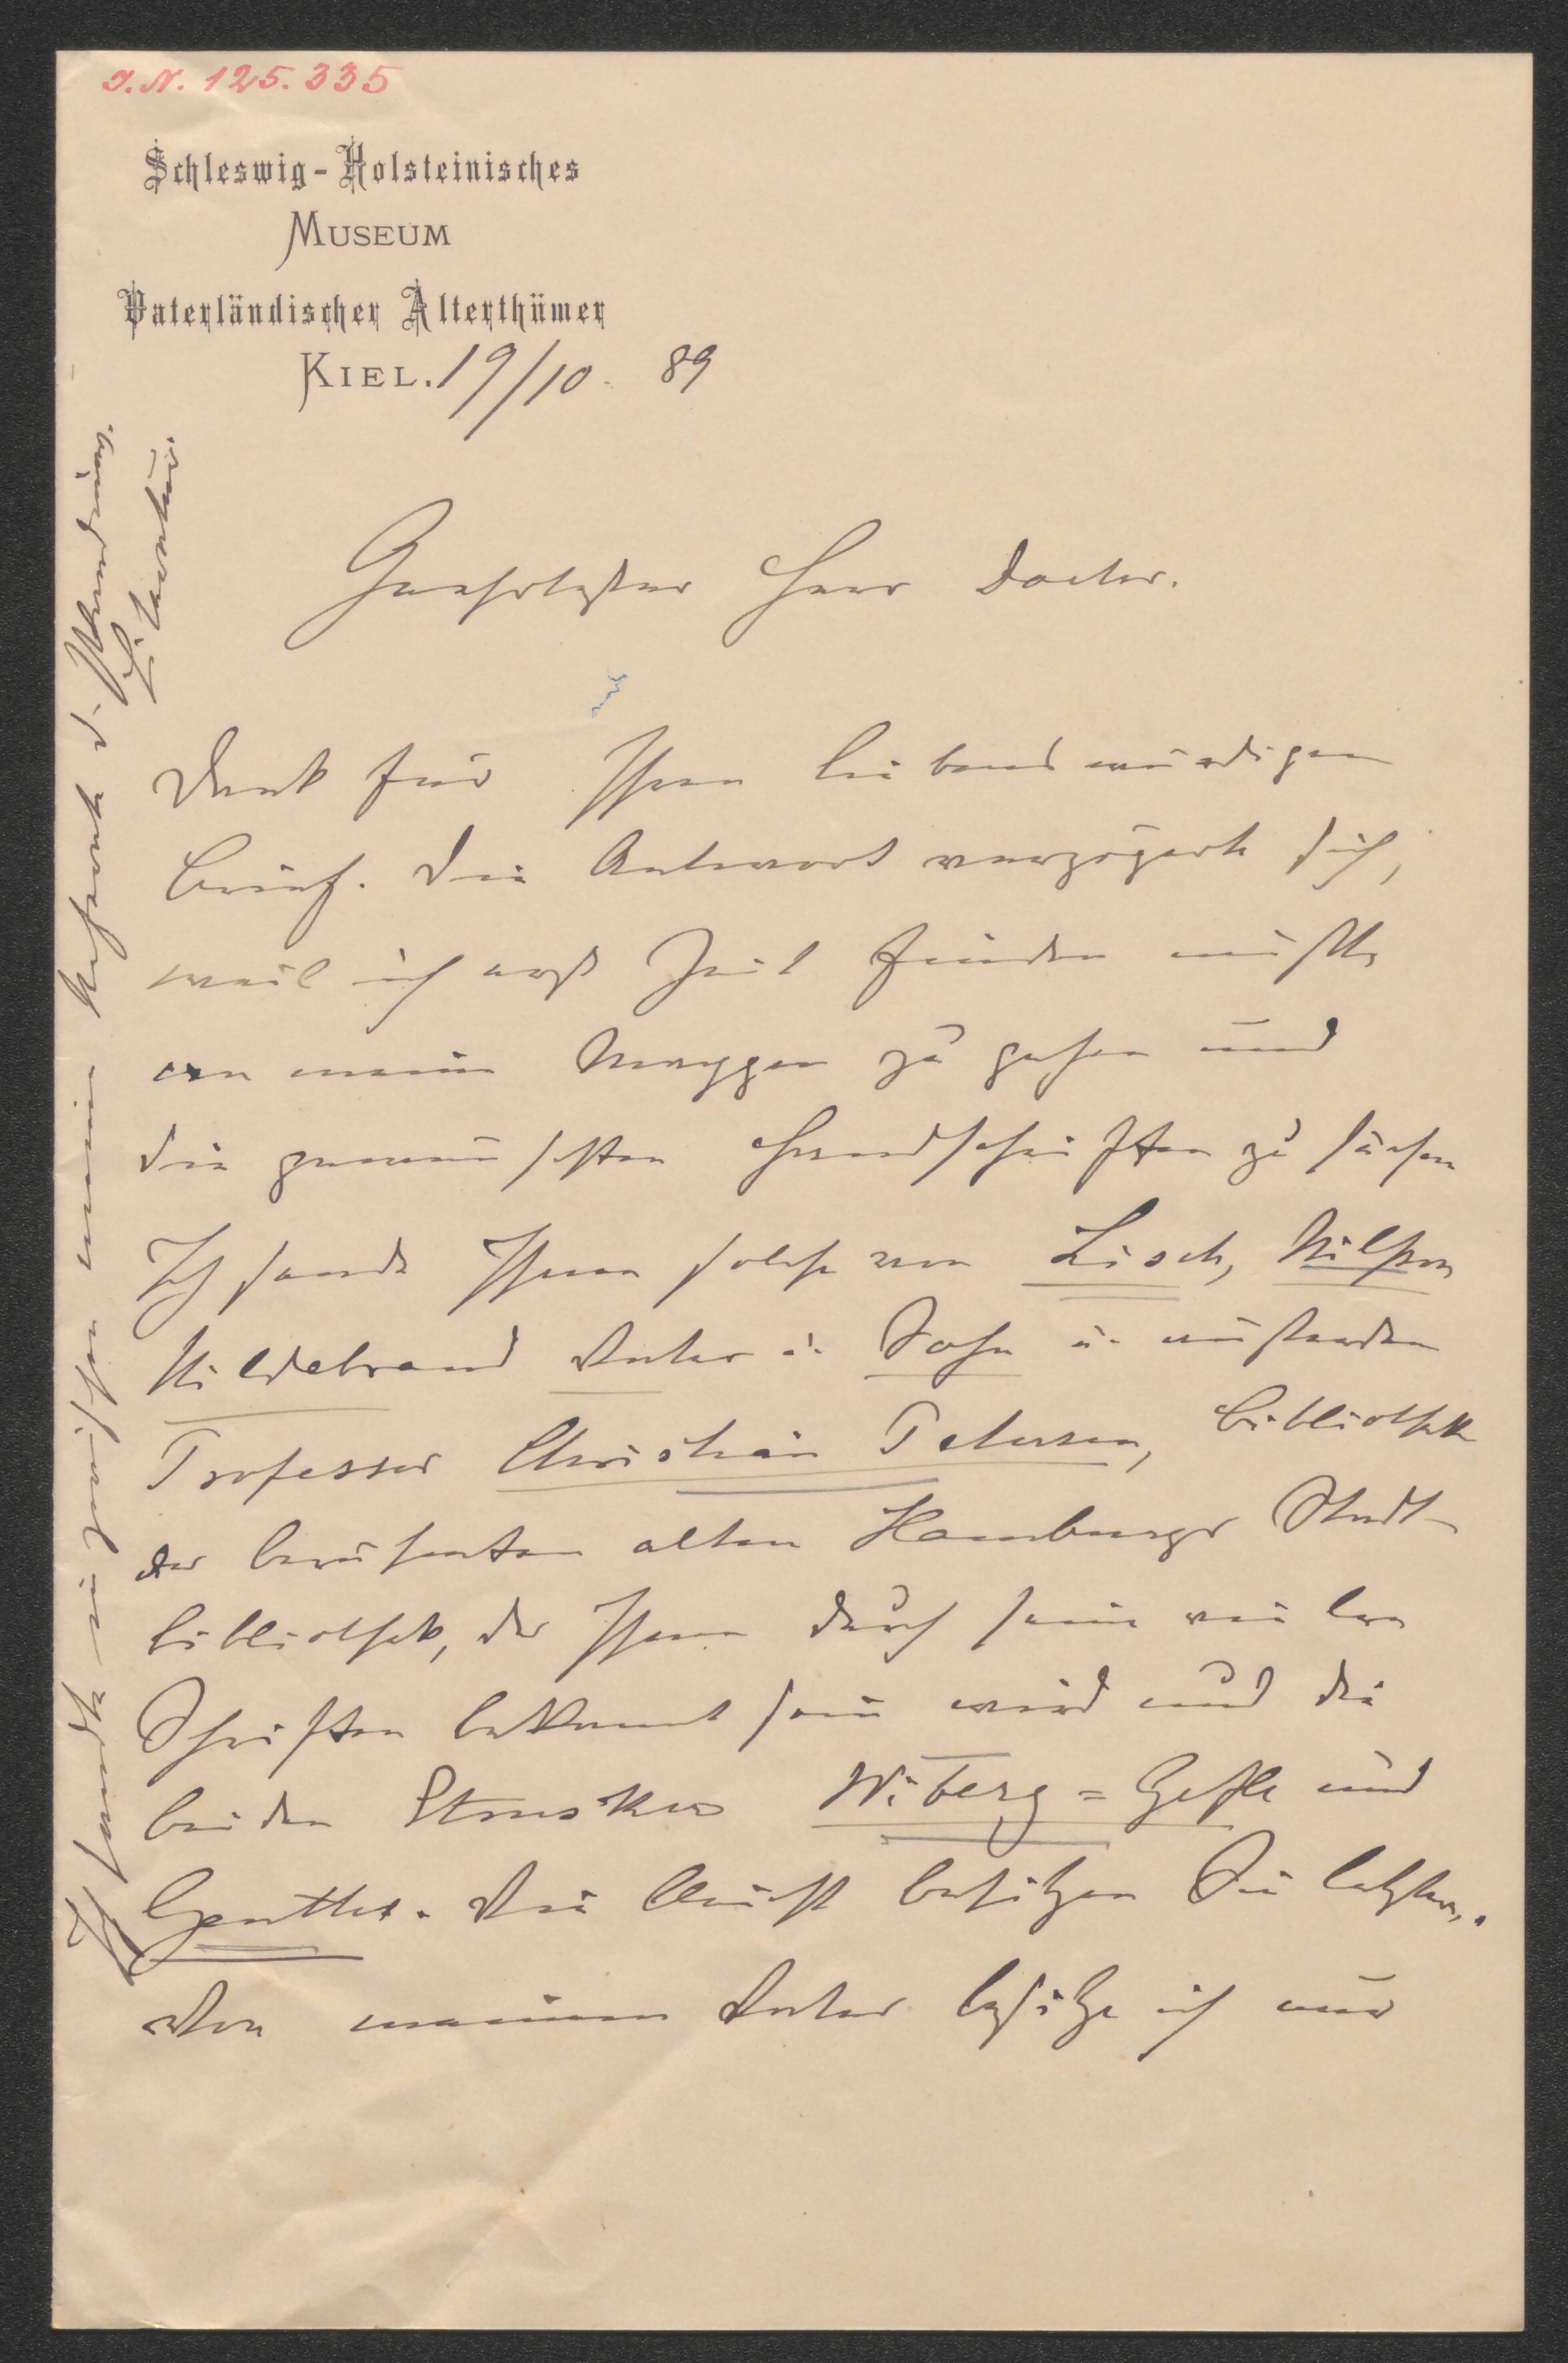 I.N. 125.335
Schleswig-Holsteinisches
MUSEUM
Vaterländischer Alterthümer
KIEL. 19/10. 89
Geehrtester Herr Doctor.
Dank für Ihren liebenswürdigen
Brief. Die Antwort verzögerte sich,
weil ich erst Zeit finden mußte
an meine Mappen zu gehen und
die gewünschten Handschriften zu suchen
Ich sende Ihnen solche von Lisch, Nilsson
Hildebrand Vater u. Sohn u.
Professor Christian Petersen, Bibliothek
der berühmten alten Hamburger Stadt-
bibliothek, der Ihnen durch seine vielen
Schriften bekannt sein wird und die
beiden Etrusker Wiberg = Gefle und
Genthe. Vielleicht besitzen Sie letztere.
Von meinem Vater besitze ich nur
Ich sende sie zwischen meine d.
Literatur.